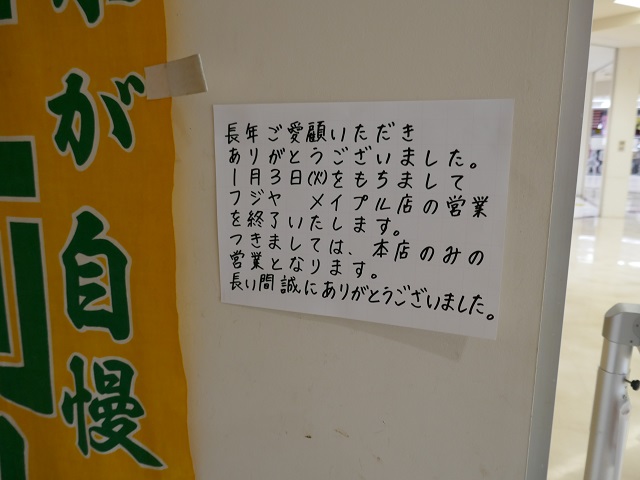 が自慢
長年ご愛顧いただき
ありがとうございました。
1月3日(火)をもちまして
フジヤ メイプル店の営業
を終了いたします。
つきましては、本店のみの
営業となります。
長い間誠にありがとうございました。